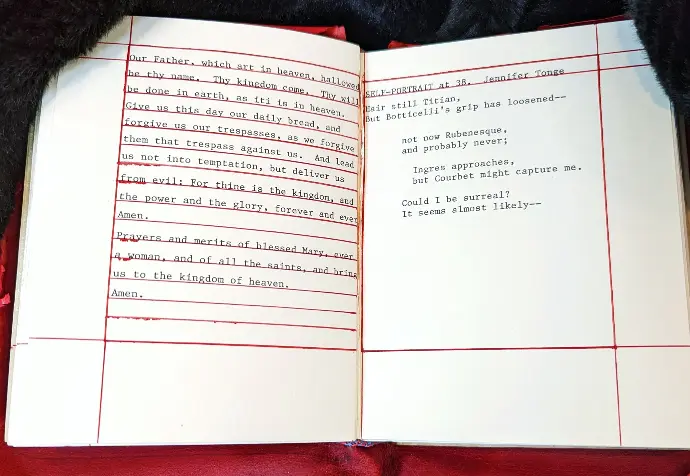 Our Father, which art in heaven, hallowed
be thy name. Thy kingdom come. Thy will
be done in earth, as iti is in heaven.
Give us this day our daily bread, and
forgive us our trespasses, as we forgive
them that trespass against us. And lead
us not into temptation, but deliver us
from evil; For thine is the kingdon, and
the power and the glory, forever and ever
Amen.
Prayers and merits of blessed Mary, ever
a woman, and of all the saints, and bring
us to the kingdom of heaven.
Amen.
SELF-PORTRAIT at 38. Jennifer Tonge
Hair still Titian,
But Botticelli's grip has loosened--
not now Rubenesque,
and probably never;
Ingres approaches,
but Courbet might capture me.
Could I be surreal?
It seems almost likely--